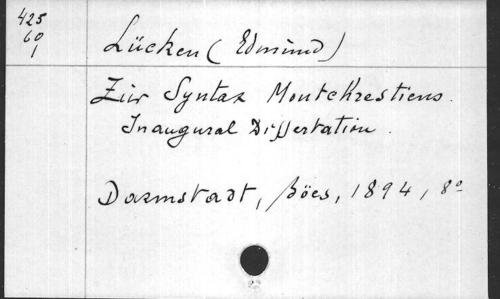 425
60
1
Lücken (Edmund)
Zur Syntax Montchrestiens.
Inaugural Dissertation.
Darmstadt, Böes, 1894, 8°